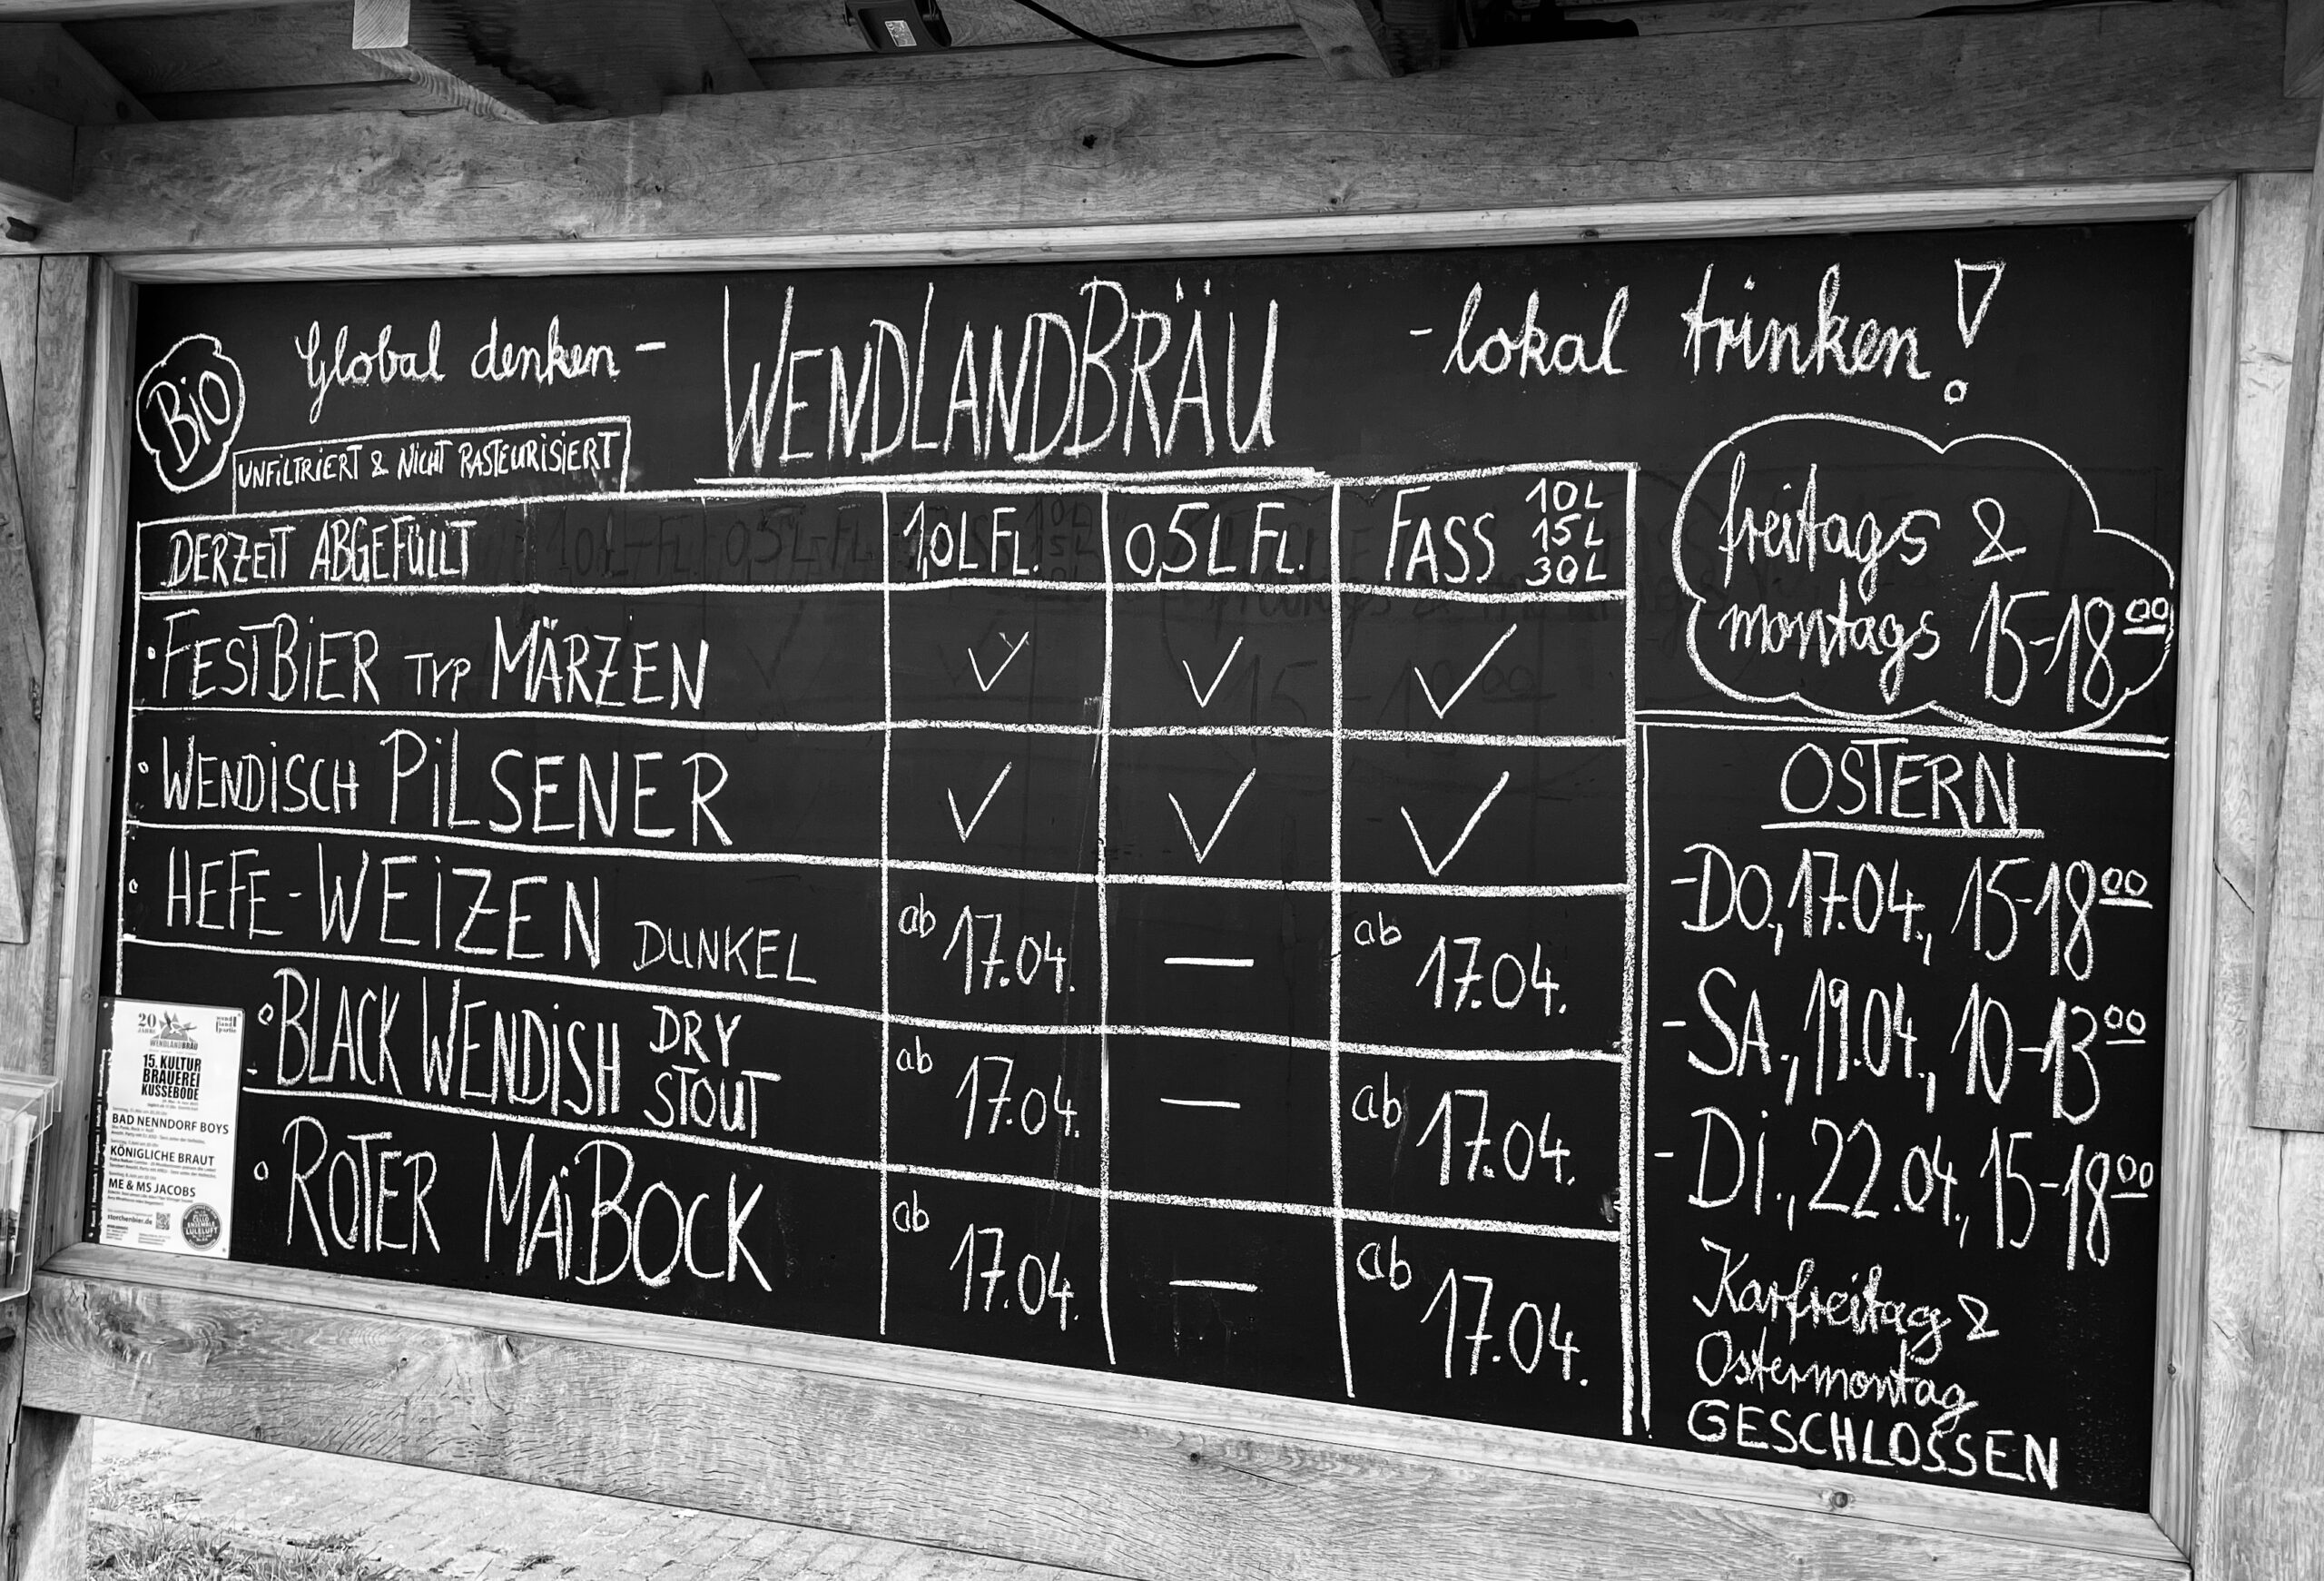 Global denken - WENDLANDBRÄU - lokal trinken!
Bio
UNFILTRIERT & NICHT PASTEURISIERT
DERZEIT ABGEFÜLLT 1,0L FL. 0,5L FL. FASS 10L 15L 30L
• FESTBIER TYP MÄRZEN ✓ ✓ ✓
• WENDISCH PILSENER ✓ ✓ ✓
• HEFE-WEIZEN DUNKEL ab 17.04. — ab 17.04.
• BLACK WENDISH DRY STOUT ab 17.04. — ab 17.04.
• ROTER MAIBOCK ab 17.04. — ab 17.04.
freitags &
montags 15-18 00
OSTERN
-DO., 17.04., 15-18 00
-SA., 19.04., 10-13 00
-DI., 22.04., 15-18 00
Karfreitag &
Ostermontag
GESCHLOSSEN
20
JAHRE
WENDLANDBRÄU
15. KULTUR
BRAUEREI
KUSSEBODE
BAD NENNDORF BOYS
KÖNIGLICHE BRAUT
ME & MS JACOBS
storchenbier.de